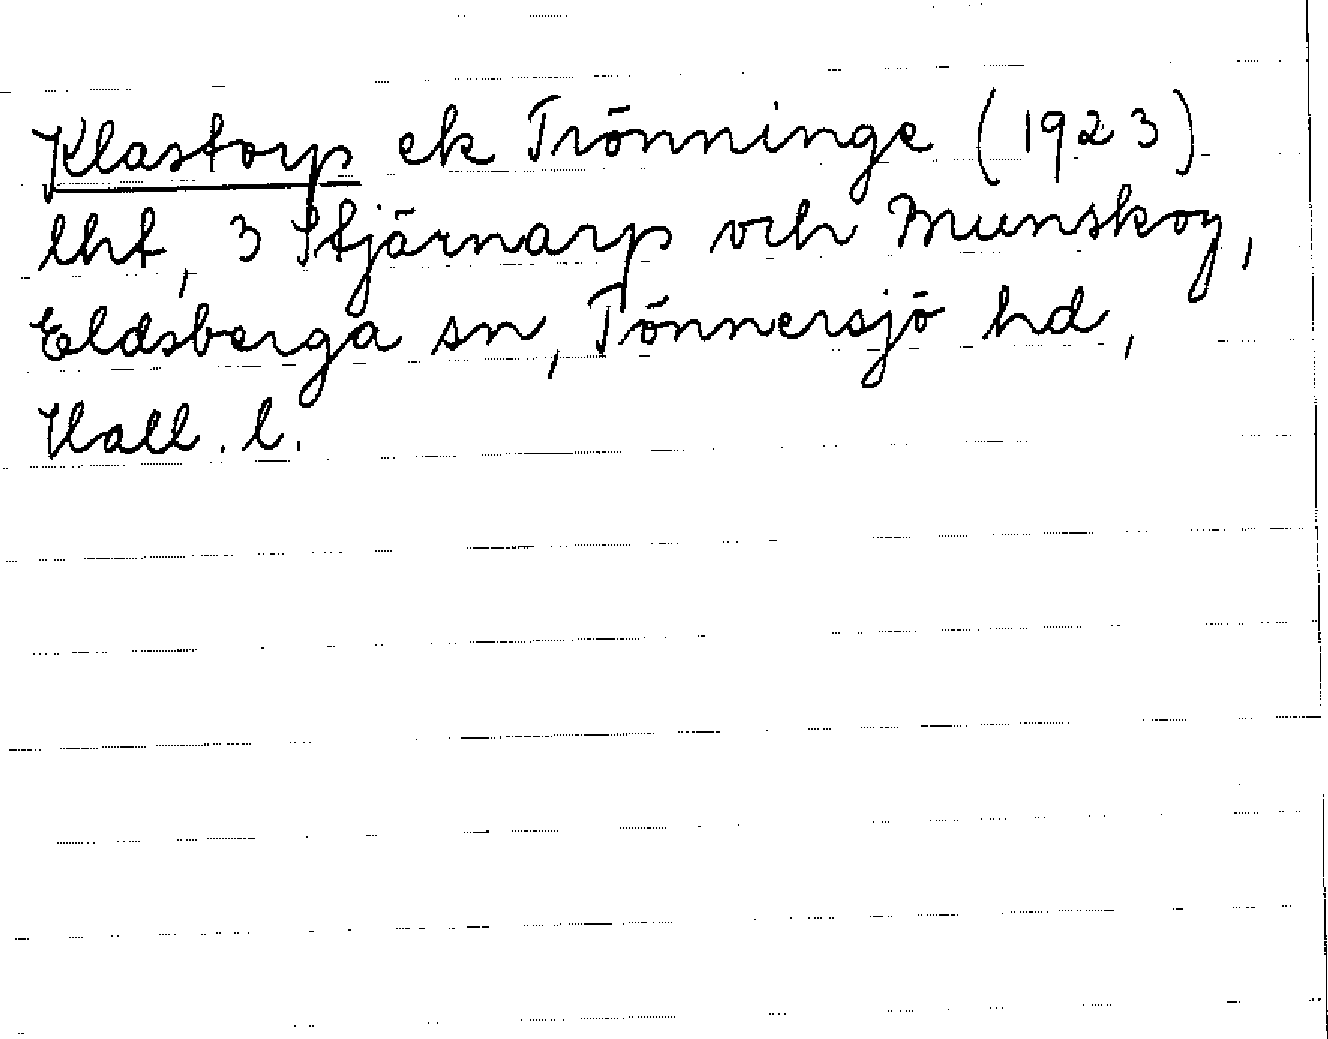 Klastorp ek Trönninge (1923)
lht, 3 Stjärnarp och Munskog,
Eldsberga sn, Tönnersjö hd,
Hall. l.